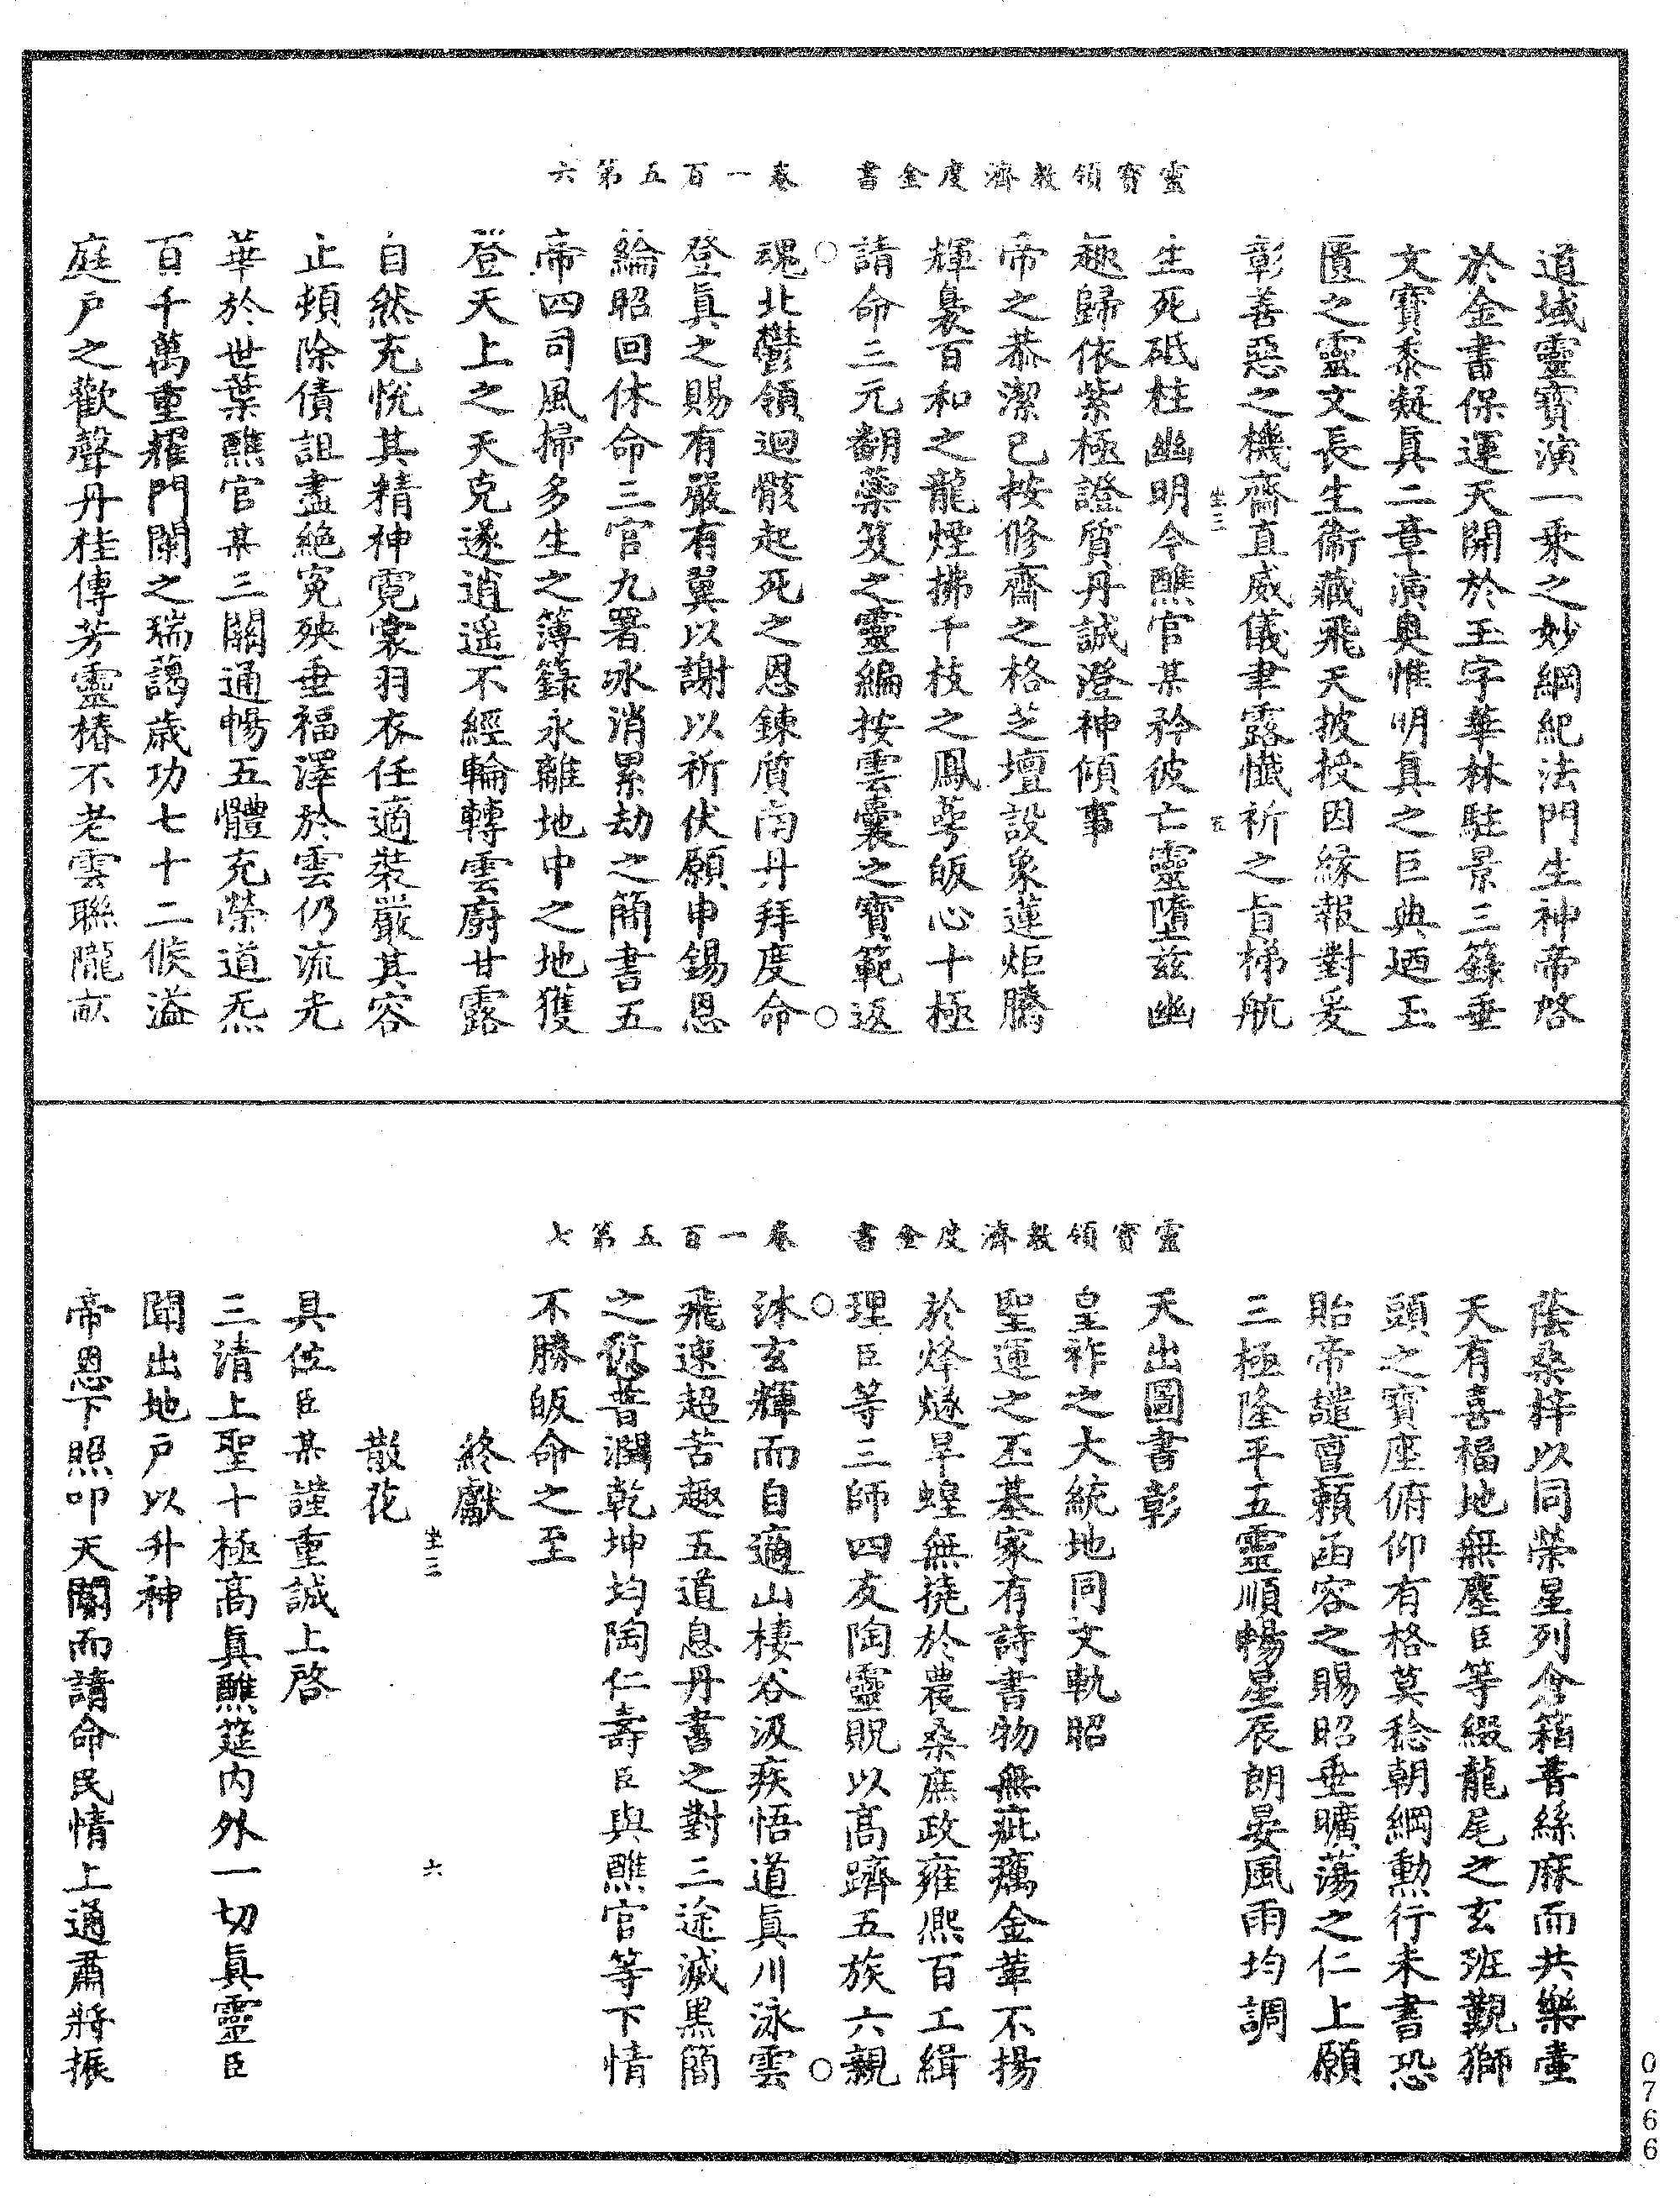 靈寶領教濟度金書　卷一百五第六
道域靈寶演一乘之妙綱紀法門生神帝啓
於金書保運天開於玉字華林駐景三籙垂
文寶黍凝真二章演奧惟明真之巨典廼玉
匱之靈文長生衞藏飛天披授因緣報對爰
彰善惡之機齋直威儀聿露懺祈之旨梯航
坐三　五
生死砥柱幽明今醮官某矜彼亡靈墮兹幽
趣歸依紫極證質丹誠澄神傾事
帝之恭潔已按修齋之格芝壇設象蓮炬騰
輝裊百和之龍煙拂千枝之鳳蕚皈心十極
請命三元翻蘂笈之靈編按雲囊之寶範返
魂北鬱領迴骸起死之恩鍊質南丹拜度命
登真之賜有嚴有翼以謝以祈伏願申錫恩
綸昭回休命三官九署冰消累劫之簡書五
帝四司風掃多生之簿籙永離地中之地獲
登天上之天克遂逍遥不經輪轉雲廚甘露
自然充悅其精神霓裳羽衣任適裝嚴其容
止頓除債詛盡絶寃殃垂福澤於雲仍流光
華於世葉醮官某三關通暢五體充榮道炁
百千萬重羅門闌之瑞藹歲功七十二候溢
庭戶之歡聲丹桂傳芳靈椿不老雲聯隴畝
靈寶領教濟度金書　卷一百五第七
蔭桑梓以同榮星列倉箱普絲麻而共樂壷
天有喜福地無塵臣等綴龍尾之玄班觀獅
頭之寶座俯仰有格莫稔朝綱勳行未書恐
貽帝譴亶頼函容之賜昭垂曠蕩之仁上願
三極隆平五靈順暢星辰朗晏風雨均調
天出圖書彰
皇祚之大統地同文軌昭
聖運之丕基家有詩書物無疵癘金革不揚
於烽燧旱蝗無撓於農桑庶政雍熙百工緝
理臣等三師四友陶靈貺以高躋五族六親
沐玄輝而自適山棲谷汲疾悟道眞川泳雲
飛速超苦趣五道息丹書之對三途滅黑簡
之愆普潤乾坤均陶仁壽臣與醮官等下情
不勝皈命之至
終獻
坐三　六
散花
具位臣某謹重誠上啓
三清上聖十極高眞醮筵内外一切眞靈臣
聞出地戶以升神
帝恩下照叩天閽而請命民情上通肅將振
0766